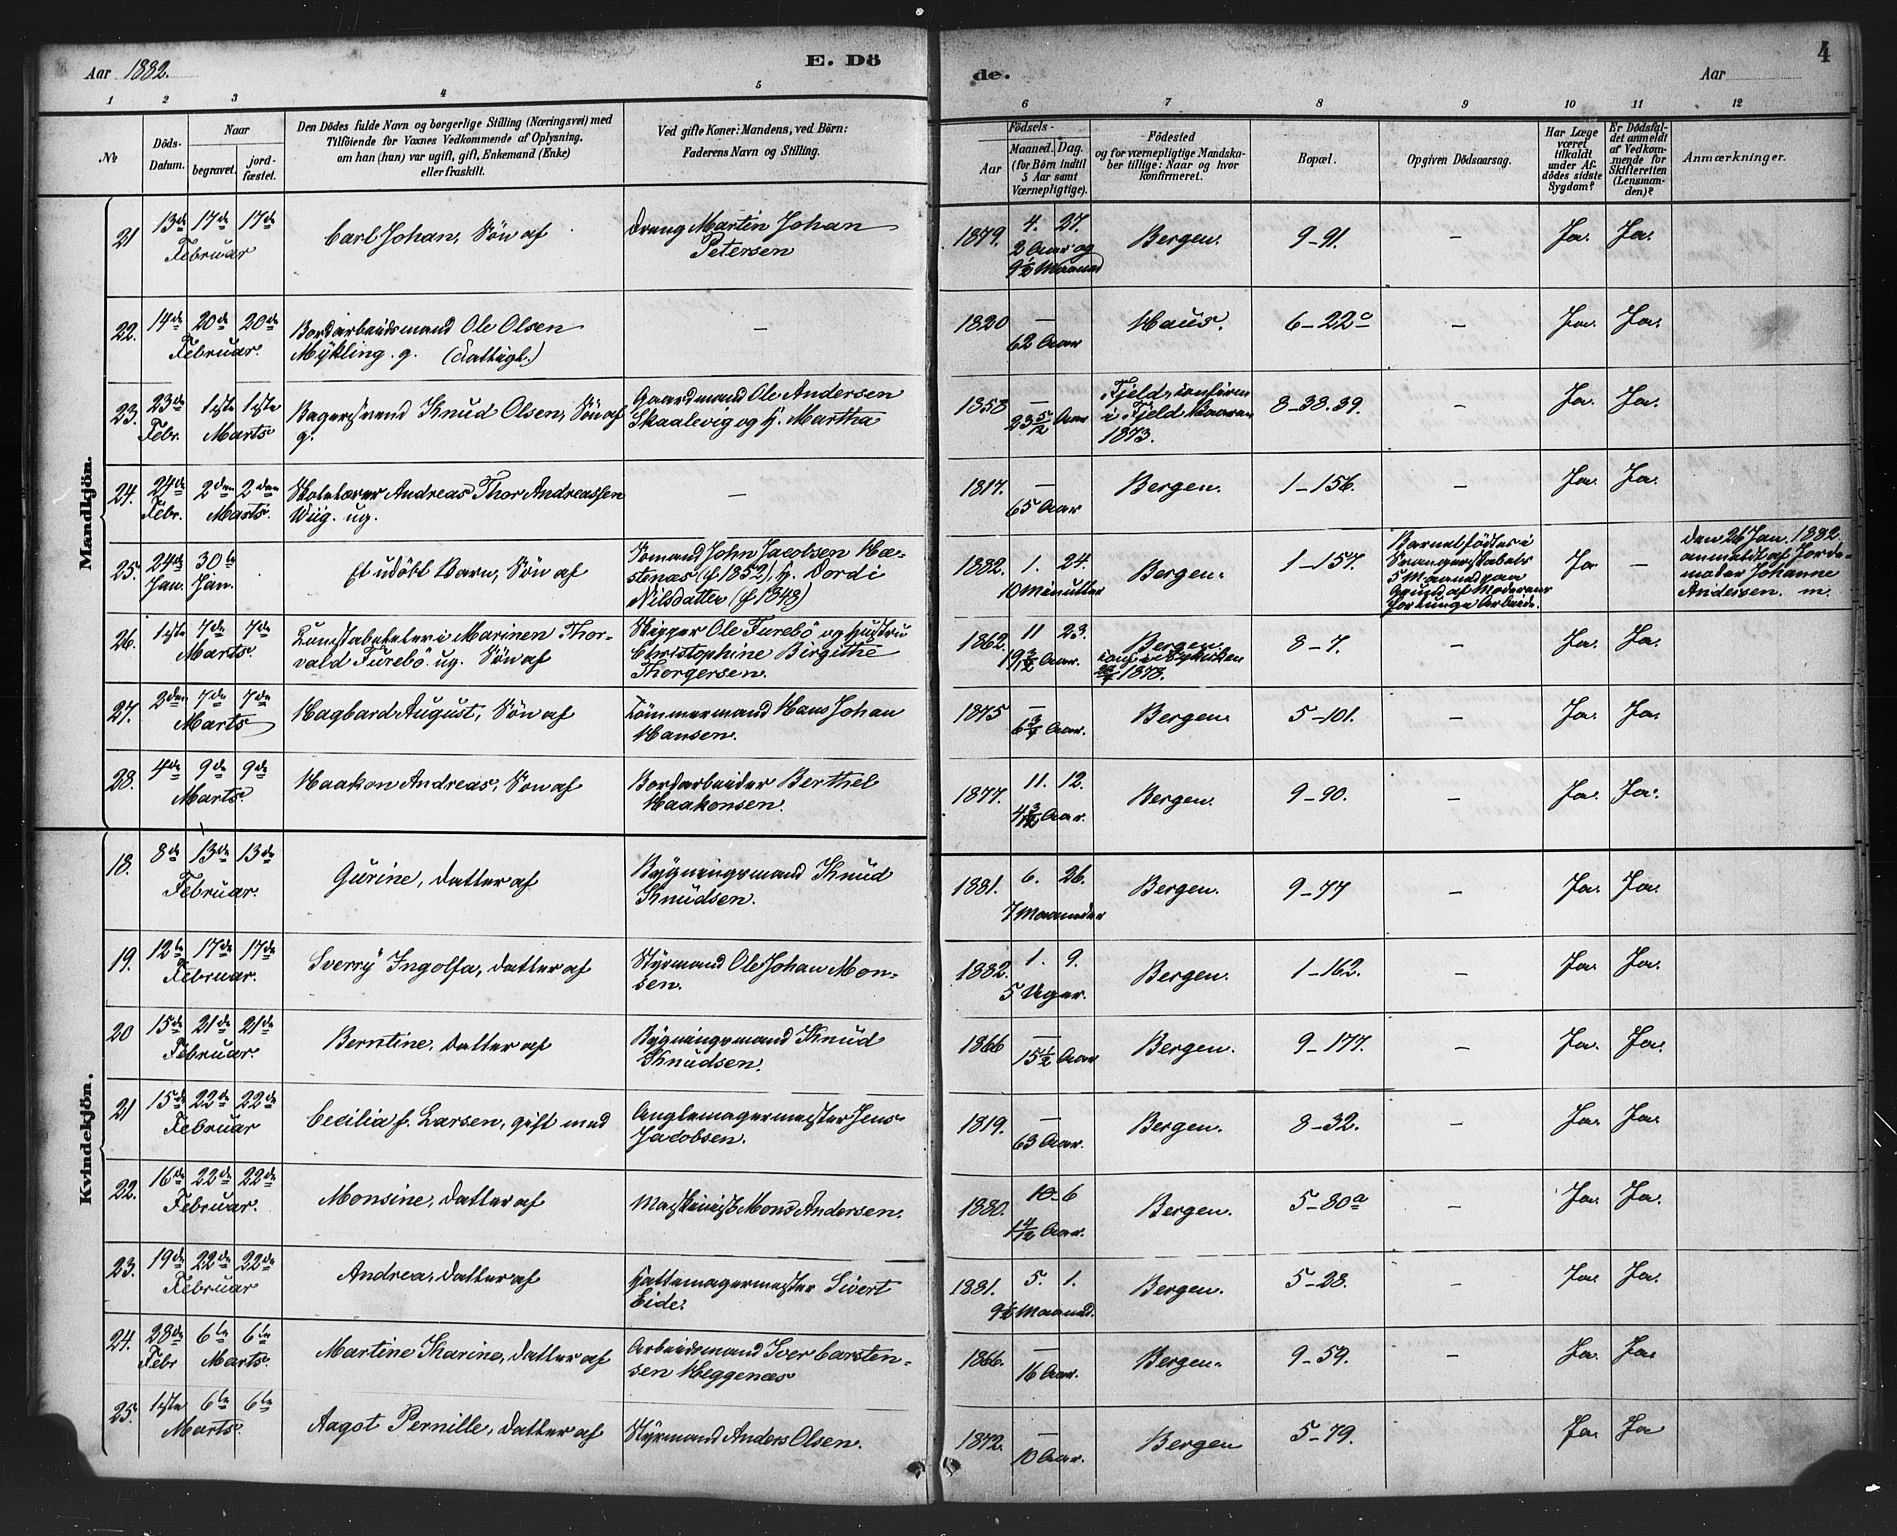 Aar 1882.
E. Dö
de.
Aar
4
1 2 3 4 5 6 7 8 9 10 11 12
No
Döds-Datum.
Naar
begravet.
jord-fæstet.
Den Dödes fulde Navn og borgerlige Stilling (Næringsvei) med
Tilföiende for Voxnes Vedkommende af Oplysning,
om han (hun) var ugift, gift, Enkemand (Enke)
eller fraskilt.
Ved gifte Koner: Mandens, ved Börn:
Faderens Navn og Stilling.
Födsels-
Aar
Maaned. Dag.
(for Börn indtil
5 Aar samt
Værnepligtige).
Födested
og for værnepligtige Mandska-
ber tillige: Naar og hvor
konfirmeret.
Bopæl.
Opgiven Dödsaarsag.
Har Læge
været
tilkaldt
under Af-
dödes sidste
Sygdom?
Er Dödsfal-
det anmeldt
af Vedkom-
mende for
Skifteretten
(Lensman-
den)?
Anmærkninger.
Mandkjön.
21 13de 17de 17de Februar Carl Johan, Sön af Dreng Martin Johan Petersen 1879. 4. 27. 2 Aar og 9½ Maaned Bergen. 9-91. - Ja. Ja.
22. 14de 20de 20de Februar. Bordarbeidsmand Ole Olsen Mykling. g. (Fattigl.) - 1820 - 62 Aar Haus. 6-22c - Ja. Ja.
23. 23de Febr. 1ste 1ste Marts Bagersvend Knud Olsen, Sön af g. Gaardmand Ole Andersen Skaalevig og H. Martha 1858 - 23 5/12 Aar Fjeld, konfirm i Fjeld 1873. 8-38.39. - Ja. Ja.
24. 24de Febr. 2den 2den Marts. Skolelærer Andreas Thor Andreassen Wiig. ug. - 1817. - 65 Aar Bergen. 1-156. - Ja. Ja.
25. 24de Jan. 30te Jan. Et udöbt Barn, Sön af Sömand John Jacobsen Hastenæs (f 1852), H. Dordi Nilsdatter (f 1848) 1882. 1. 24. 10 Minutter Bergen. 1-157. Barnet födtes i Svangerskabets 5 Maaned paa Grund af Moderens Ja - den 26 Jan. 1882 anmeldt af Jordemoder Johanne Andersen. m.
26. 1ste 7de 7de Marts. i Marinen Thorvald Furebö. ug. Sön af Skipper Ole Furebö og Hustru Christophine Birgithe Thorgersen. 1862. 11 23. 19 3/12 Aar. Bergen 1878. 8-7. - Ja. Ja.
27. 2den 7de 7de Marts Hagbard August, Sön af Tömmermand Hans Johan Hansen. 1875 - 6¾ Aar. Bergen. 5-101. - Ja. Ja.
28. 4de 9de 9de Marts. Haakon Andreas, Sön af Bordarbeider Berthel Haakonsen. 1877. 11. 12. 4 3/12 Aar. Bergen. 9-90. - Ja. Ja.
Kvindekjön.
18. 8de 13de 13de Februar. Gurine, Datter af Bygningsmand Knud Knudsen. 1881. 6. 26. 7 Maaneder Bergen. 9-77 - Ja. Ja.
19. 12te 17de 17de Februar. Sverry Ingolfa, Datter af Styrmand Ole Johan Monsen. 1882. 1. 9. 5 Uger. Bergen. 1-162. - Ja. Ja.
20 15de 21de 21de Februar. Berntine, Datter af Bygningsmand Knud Knudsen. 1866 - 15½ Aar Bergen. 9-177. - Ja. Ja.
21 15de 22de 22de Februar Cecilia f. Larsen, gift med Anglemagermester Jens Jacobsen. 1819. - 63 Aar. Bergen. 8-32. - Ja. Ja.
22. 16de 22de 22de Februar. Monsine, Datter af Maskinist Mons Andersen. 1880. 10-6 1 4/12 Aar. Bergen. 5-80a - Ja. Ja.
23. 19de 22de 22de Februar Andrea, Datter af Hattemagermester Sivert Eide. 1881. 5. 1. 9½ Maaned. Bergen. 5-28. - Ja. Ja.
24. 28de Febr 6te 6te Marts. Martine Karine, Datter af Arbeidsmand Iver Carstensen Heggenæs 1866. - 16 Aar. Bergen. 9-59. - Ja. Ja.
25. 1ste 6te 6te Marts. Aagot Pernille, Datter af Styrmand Anders Olsen. 1872. - 10 Aar. Bergen 5-79. Ja. Ja